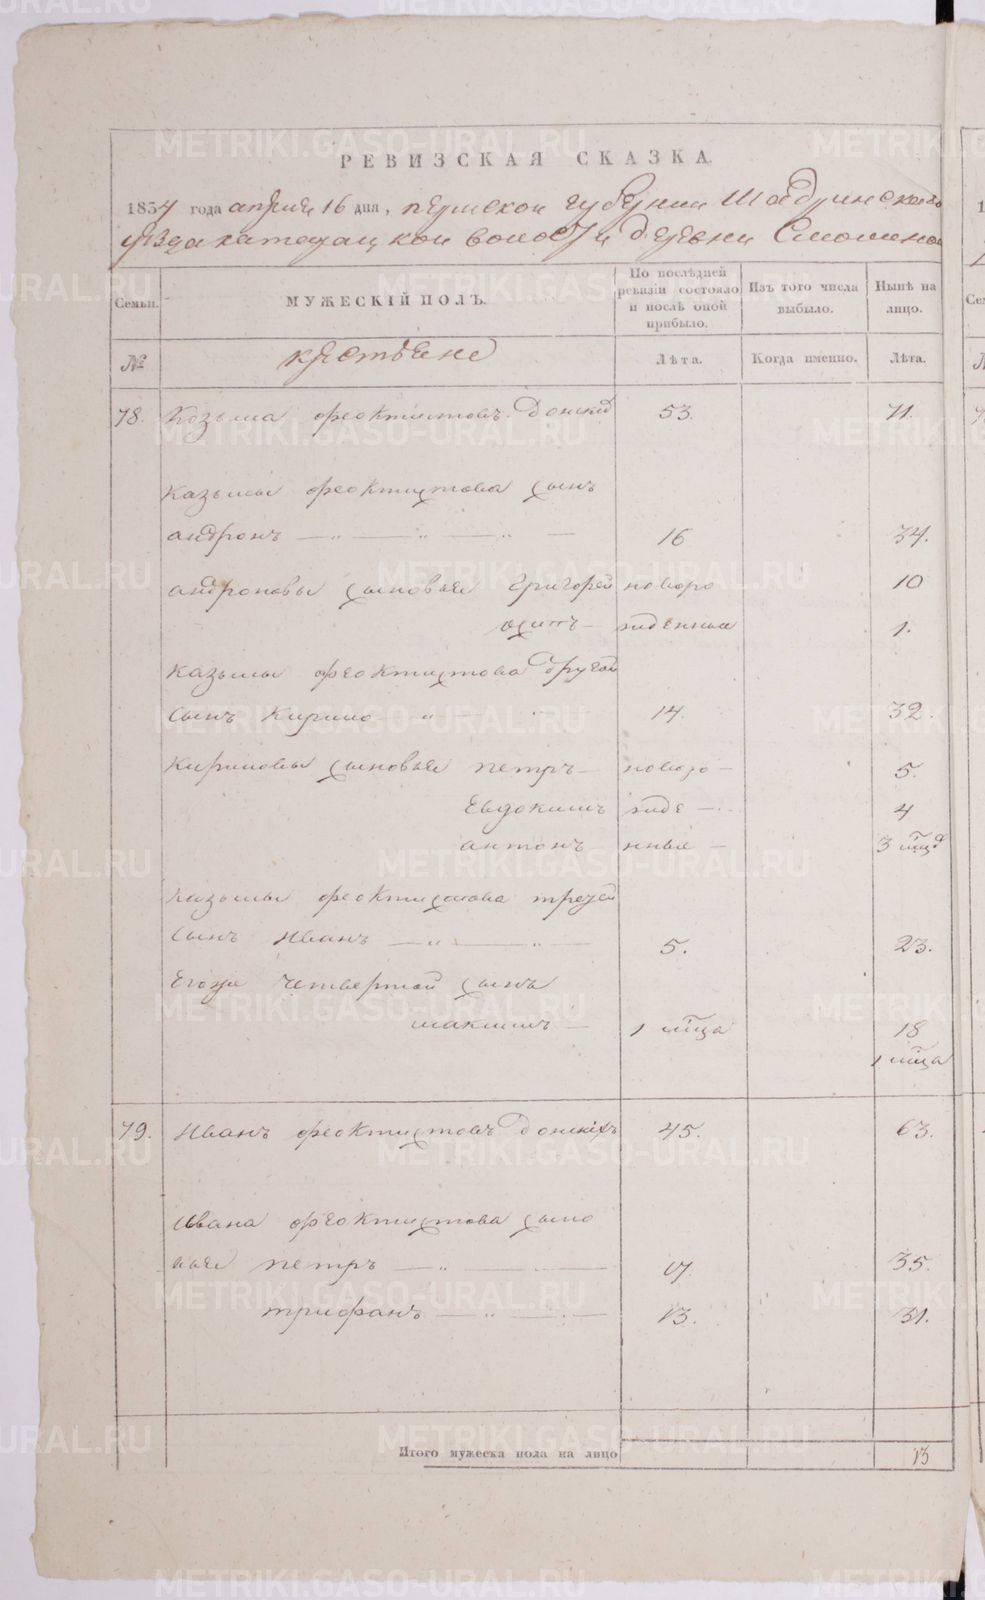 РЕВИЗСКАЯ СКАЗКА.
1834 года апреля 16 дня, пермской губернии Шадринскаго
уезда катайской волости деревни
Семьи. МУЖЕСКІЙ ПОЛЪ. По послѣдней ревизіи состояло и послѣ оной прибыло. Изъ того числа выбыло. Нынѣ на лицо.
№ крестьяне Лѣта. Когда именно. Лѣта.
78. Козьма феоктистовъ Донских 53. 71.
Казьмы феоктистова сынъ
андронъ — „ — „ — „ — 16 34.
андроновы сыновья григорей новоро 10
осипъ — жденныя 1.
Казьмы феоктистова другой
сынъ Кирило „ 14. 32.
Кириловы сыновья петръ — новоро — 5.
Евдокимъ жде — 4
антонъ нныя — 3 мцд
Казьмы феоктистова третей
сынъ Иванъ — „ — „ — 5. 23.
Егоже четвертой сынъ
максимъ — 1 мца 18
1 мца
79. Иванъ феоктистовъ Донскихъ 45. 63.
Ивана феоктистова сыно
вья петръ — „ — 17. 35.
трифанъ — „ — 13. 31.
Итого мужеска пола на лицо 13
METRIKI.GASO-URAL.RU